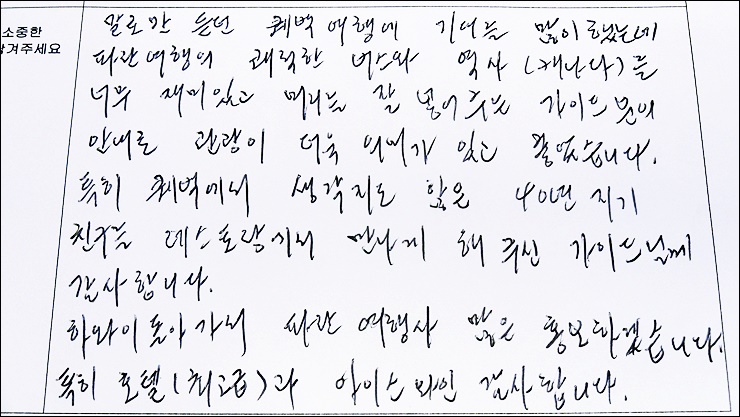 소중한
남겨주세요
말로만 듣던 퀘벡여행에 기대를 많이 했는데
파란여행의 쾌적한 버스와 역사(캐나다)를
너무 재미있고 머리에 잘 넣어주는 가이드분의
안내로 관광이 더욱 의미가 있고 좋았습니다.
특히 퀘벡에서 생각지도 않은 40년 지기
친구를 레스토랑에서 만나게 해 주신 가이드님께
감사합니다.
하와이 돌아가서 파란여행사 많은 홍보하겠습니다.
특히 호텔(최고급)과 아이스와인 감사합니다.